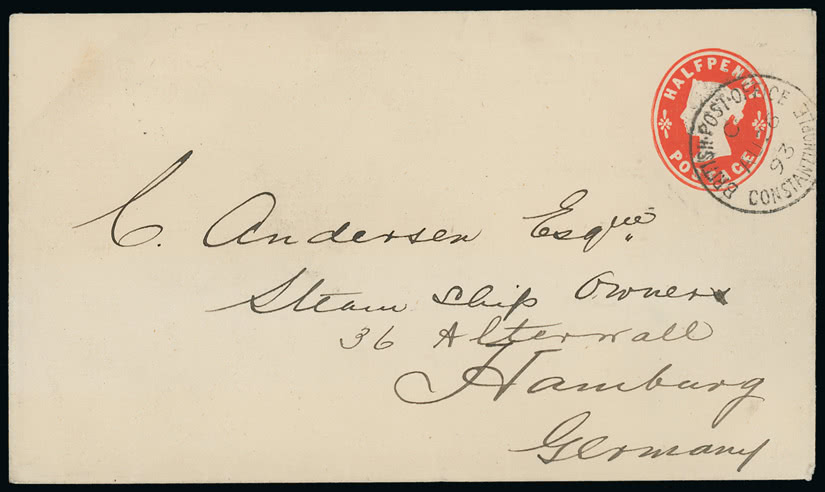 HALFPENNY
POSTAGE
BRITISH·POST·OFFICE
CONSTANTINOPLE
C
93
C. Andersen Esqre
Steam Ship Owners
36 Alterwall
Hamburg
Germany